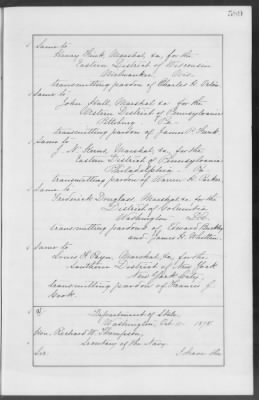 589
Same to
Henry Fink, Marshal, &a, for the
Eastern District of Wisconsin
Milwaukee, Wis.
transmitting pardon of Charles H.
Same to
John Hall, Marshal &a for the
Western District of Pennsylvania
Pittsburg Pa
transmitting pardon of James P. Funk
Same to
J. N. Kerns, Marshal, &a for the
Eastern District of Pennsylvania
Philadelphia Pa
transmitting pardon of Warren H. Parker
Same to
Frederick Douglass, Marshal, &a for the
District of Columbia
Washington D.C.
transmitting pardons of Edward
and James H. Whitten
Same to
Louis F. Payn, Marshal, &a, for the
Southern District of New York
New York City,
transmitting pardon of Francis J.
Cook.
Department of State,
Washington, Oct. 1878
Hon. Richard W. Thompson,
Secretary of the Navy
Sir: I have the